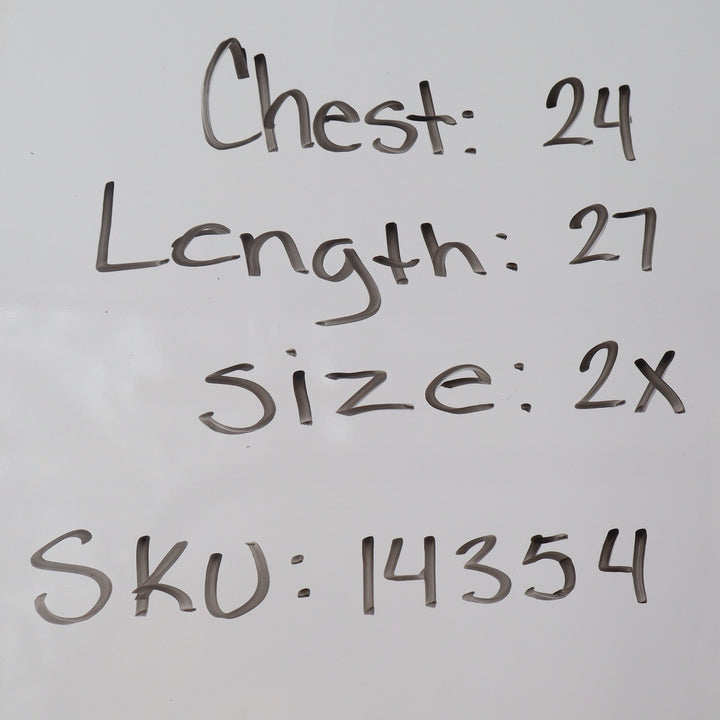 Chest: 24
Length: 27
size: 2x
SKU: 14354